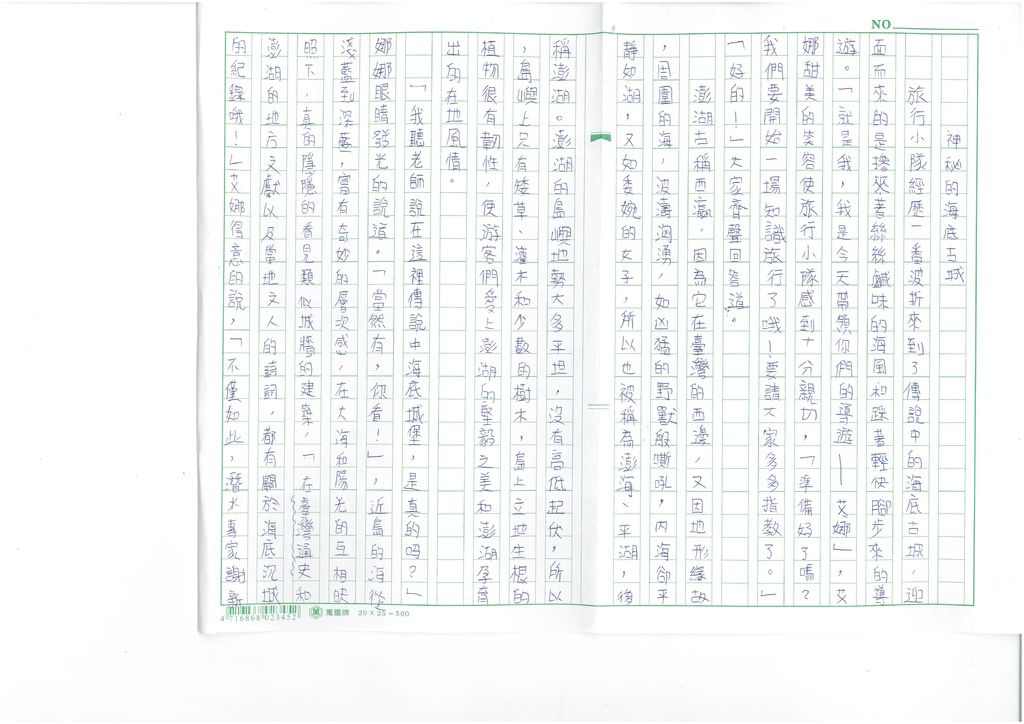 NO
神秘的海底古城
旅行小隊經歷一番波折來到了傳說中的海底古城，迎
面而來的是摻夾著絲絲鹹味的海風和踩著輕快腳步來的導
遊。「就是我，我是今天帶領你們的導遊——艾娜」，艾
娜甜美的笑容使旅行小隊感到十分親切，「準備好了嗎？
我們要開始一場知識旅行了哦！要請大家多多指教了。」
「好的！」大家齊聲回答道。
澎湖古稱西瀛，因為它在臺灣的西邊，又因地形緣故
，周圍的海，波濤洶湧，如凶猛的野獸般嘶吼，內海卻平
靜如湖，又如委婉的女子，所以也被稱為澎海、平湖，後
稱澎湖。澎湖的島嶼地勢大多平坦，沒有高低起伏，所以
，島嶼上只有矮草、灌木和少數的樹木，島上立地生根的
植物很有韌性，使遊客們愛上澎湖的堅毅之美和澎湖孕育
出的在地風情。
「我聽老師說在這裡傳說中海底城堡，是真的嗎？」
娜娜眼睛發光的說道。「當然有，你看！」，近島的海從
淺藍到深藍，富有奇妙的層次感，在大海和陽光的互相映
照下，真的隱隱的看見類似城牆的建築，「在臺灣通史和
澎湖的地方文獻以及當地文人的詩詞，都有關於海底沉城
的紀錄哦！」艾娜得意的說，「不僅如此，潛水專家謝新
4 716868 023452
萬國牌 20×25=500